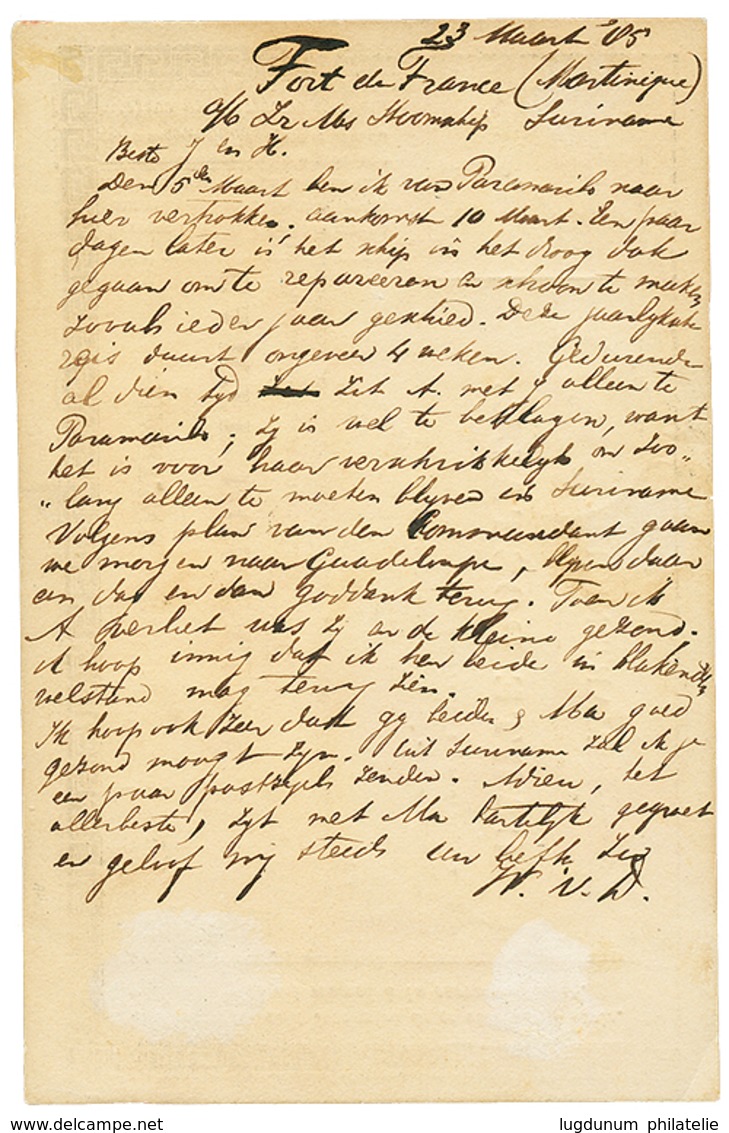 23 Maart '85
Fort de France (Martinique)
a/b Zr Ms Stoomschip Suriname
Beste J en H.
Den 5den Maart ben ik van Paramaribo naar
hier vertrokken, aankomst 10 Maart. Een paar
dagen later is het schip in het droog dok
gegaan om te repareeren en schoon te maken
zooals ieder jaar geschied. Deze jaarlyksche
reis duurt ongeveer 4 weken. Gedurende
al dien tyd zit A. met J alleen te
Paramaribo; zy is wel te beklagen, want
het is voor haar verschrikkelyk om zoo„
„lang alleen te moeten blyven in Suriname
Volgens plan van den Commandant gaan
we morgen naar Guadeloupe, blyven daar
een dag en dan goddank terug. Toen ik
A verliet was zy en de kleine gezond.
ik hoop innig dat ik hen beide in blakende
welstand mag terug zien.
Ik hoop ook zeer dat gy beiden & Ma goed
gezond moogt zyn. Uit Suriname zal ik je
een paar postzegels zenden. Adieu, het
allerbeste, zyt met Ma hartelijk gegroet
en geloof my steeds uw liefh.
W. v. D.
delcampe.net
lugdunum philatelie